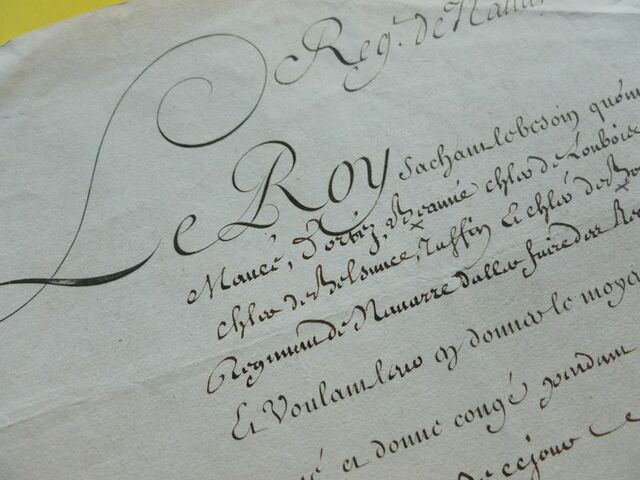 Reg.t de Navar
Le Roy sachant le besoin qu'ont
Maucé, Dortez, Beaunie, chler de Louboie
chler de Belsunce, Taffin, Le chler de
Regiment de Navarre d'aller faire des Re
Et Voulant leur y donner le moye
et donne congé pendant
de ce jour